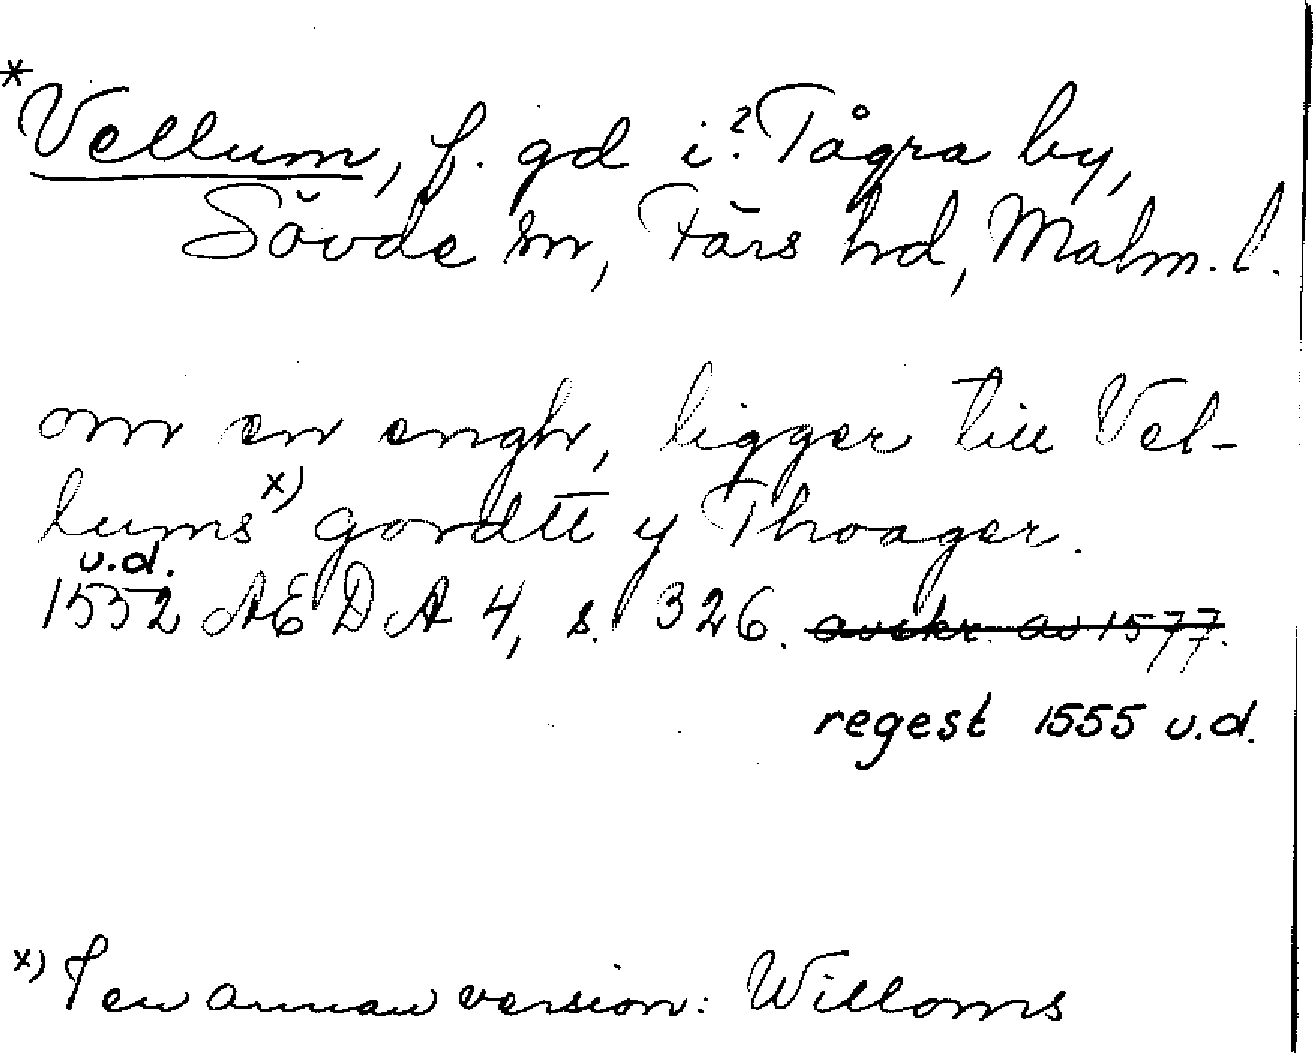 *Vellum, f. gd i ?Tågra by,
Sövde sn, Färs hd, Malm. l.
om en engh, ligger till Vel-
lums x) gordtt y Thoager.
u.d.
1552 AEDA 4, s. 326. avskr. av 1577.
regest 1555 u.d.
x) I en annan version: Willoms